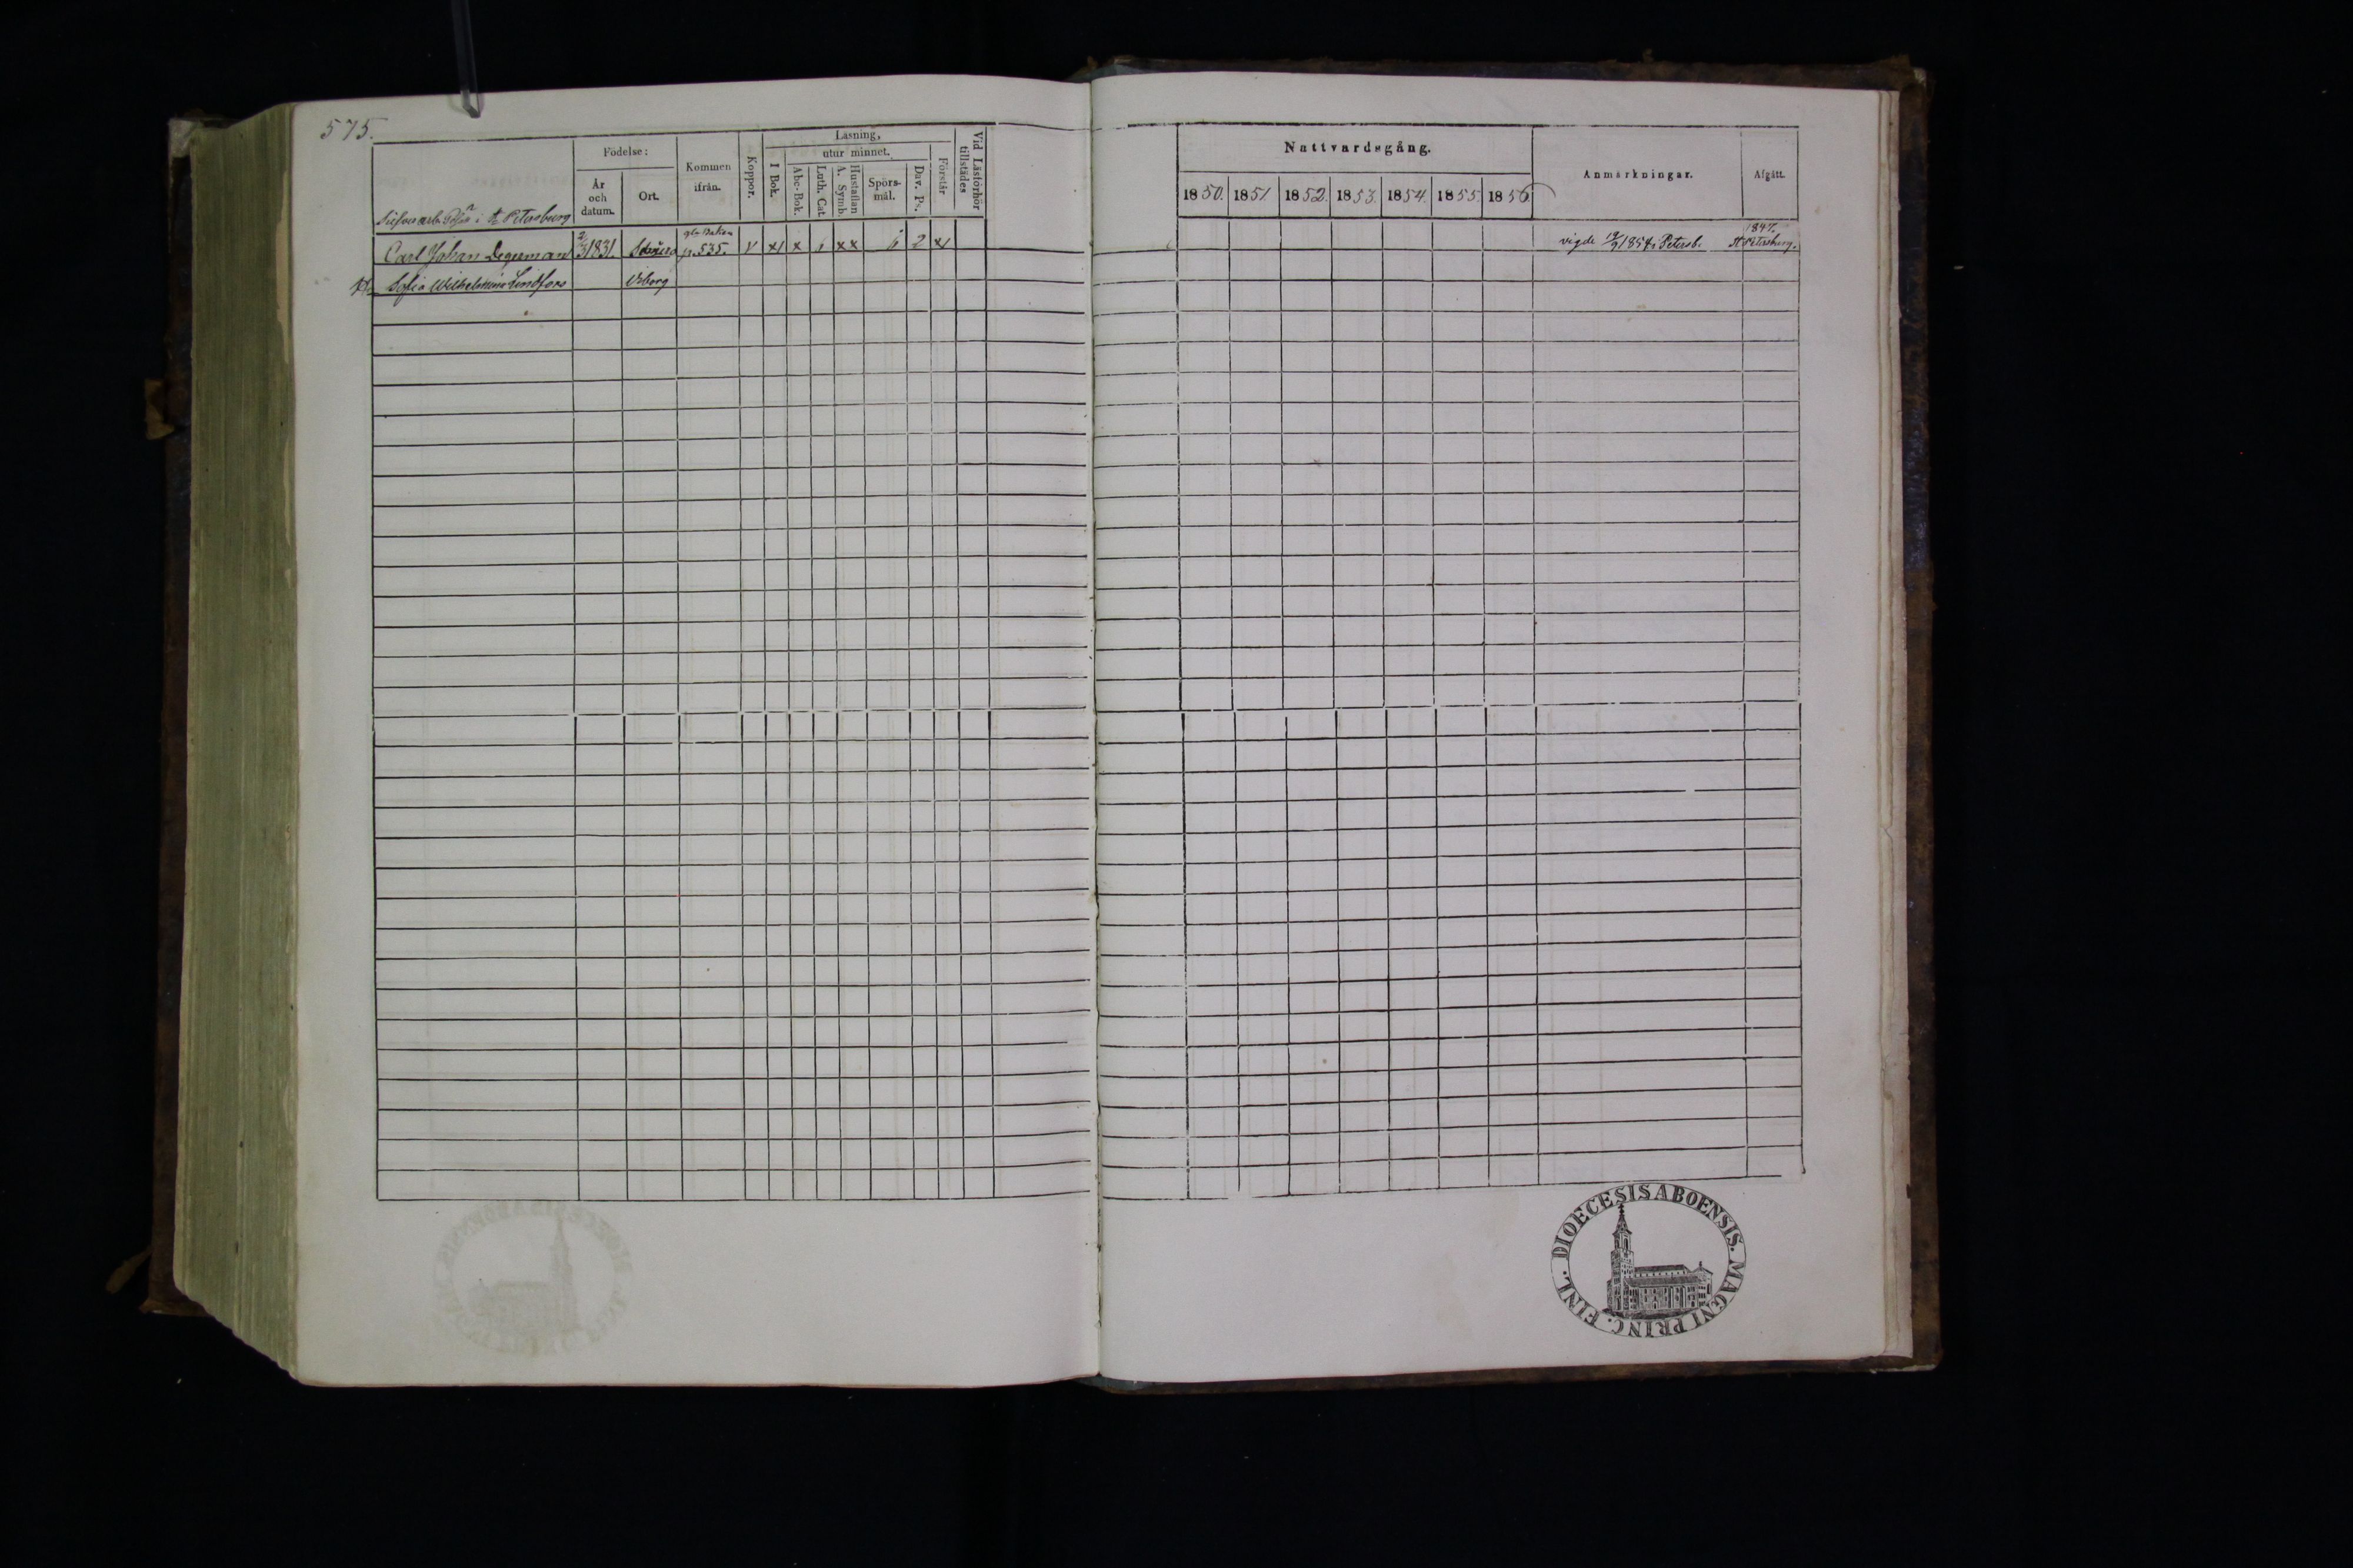 575.
Födelse:
År och datum.
Ort.
Kommen ifrån.
Koppor.
Läsning,
utur minnet.
I Bok.
Abc-Bok.
Luth. Cat.
Hustaflan A. Symb.
Spörs-mål.
Dav. Ps.
Förstår
Vid Läsförhör tillstädes
i St Petersburg
Carl Johan Degerman 2/3 1831. p. 535. v x x x x 6 2 x
H. Sofia Wilhelmina Lindfors Viborg
Nattvardsgång.
1850. 1851. 1852. 1853. 1854. 1855. 1856.
Anmärkningar.
Afgått.
vigde 19/9 1854 i Petersb.
1847.
St Petersburg.
DIOECESIS ABOENSIS. MAGNI PRINC. FINL.